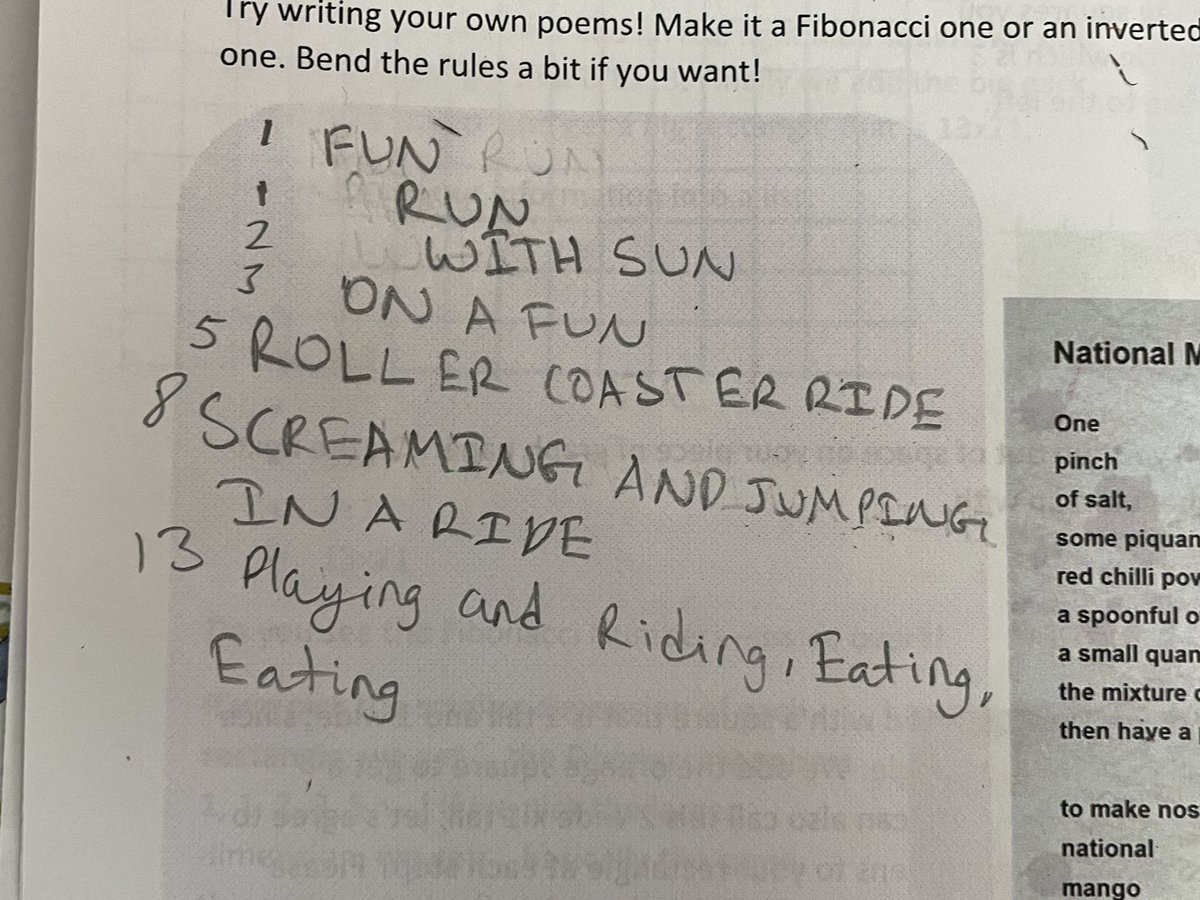 Try writing your own poems! Make it a Fibonacci one or an inverted
one. Bend the rules a bit if you want!
1 FUN RUN
1 RUN
2 WITH SUN
3 ON A FUN
5 ROLLER COASTER RIDE
8 SCREAMING AND JUMPING
IN A RIDE
13 Playing and Riding, Eating,
Eating
National M
One
pinch
of salt,
some piquan
red chilli pow
a spoonful o
a small quan
the mixture
then have a
to make nos
national
mango